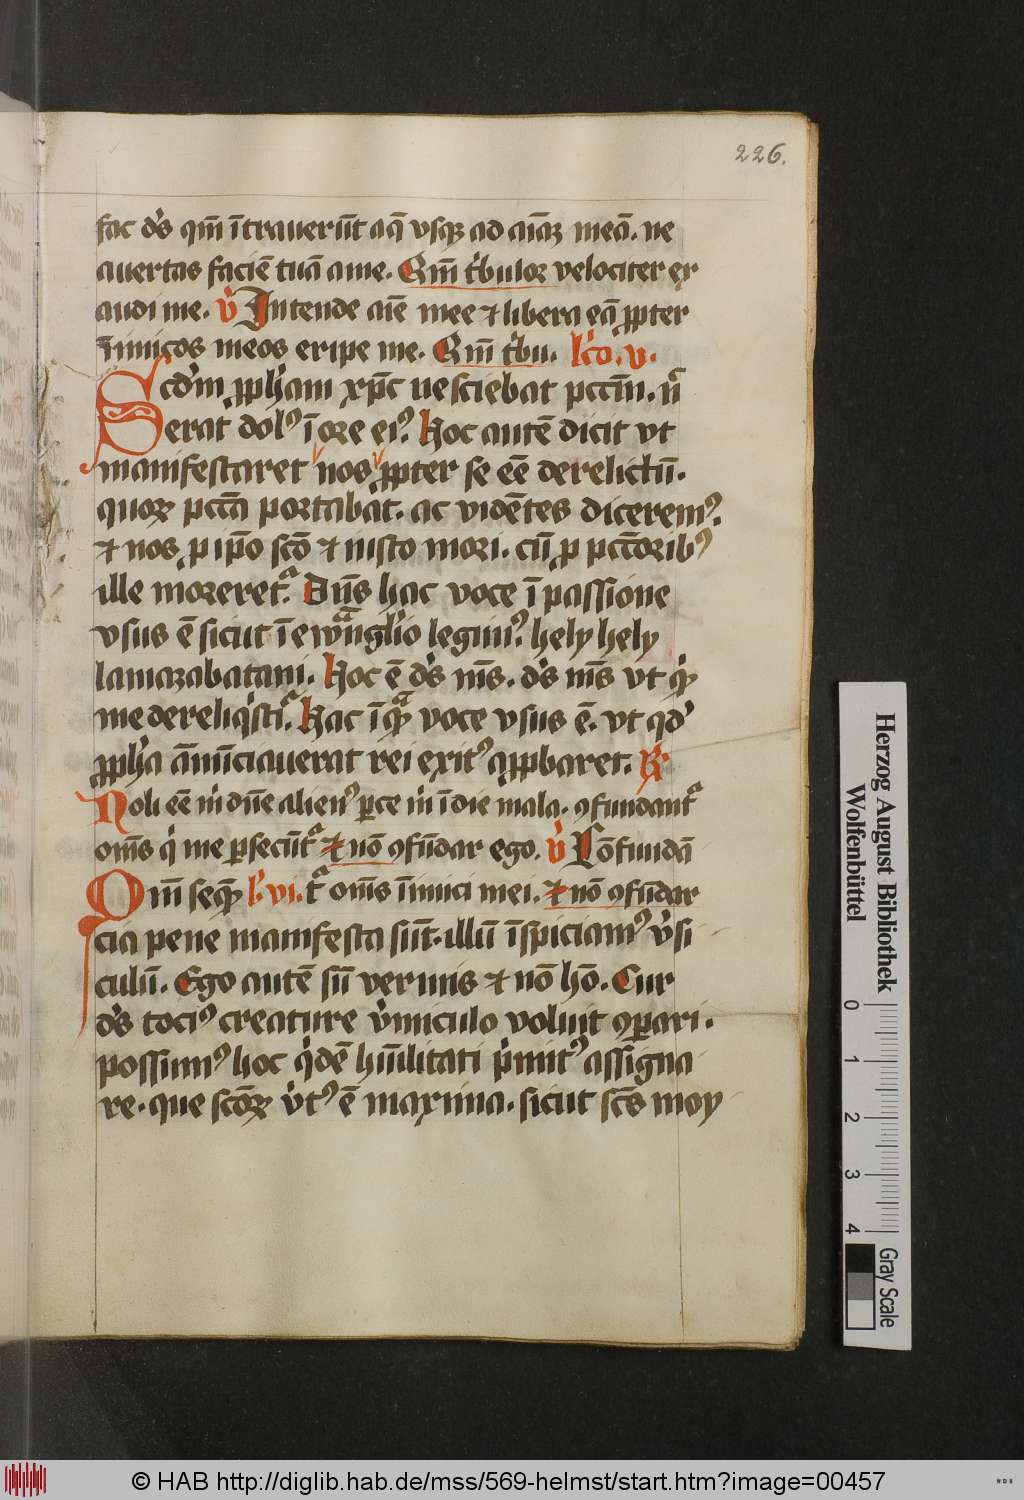 226.
fac dˢ qm̄ ītrauerūt aq̄ vsqꝫ ad aīaꝫ meā. ne
auertas faciē tuā a me. Qm̄ tˡbuloꝛ velociter ex
audi me. v̾ Intende aīe mee ⁊ libera eā ꝓpter
īimicos meos eripe me. Qm̄ tˡbu. lc̄o. v.
Scd̾m ꝓph̾iam xp̄c nesciebat pcc̄m. n̄
erat dolꝰ ī ore eiꝰ. Hoc autē dicit vt
manifestaret nos ꝓpter se eē derelictū.
quoꝝ pcc̄a portabat. ac vidētes diceremꝰ.
⁊ nos ꝓ ip̄o scō ⁊ iusto mori. cū ꝓ pcc̄oribꝰ
ille moreret᷑. Dn̄s hac voce ī passione
vsus ē sicut ī ewāngl̾io legimꝰ. hely hely
lamazabatani. Hoc ē dˢ mˢ. dˢ mˢ vt qˡd
me dereliqˡsti᷑. Hac īqᷓꝫ voce vsus ē. vt qd̾
ꝓph̾a ānūciauerat rei exitꝰ aꝓpbaret. ℟
Noli eē m̍ dn̄e alienꝰ ꝑce m̍ ī die mala. ꝯfundant᷑
om̄s qˡ me ꝑsecūt᷑ ⁊ nō ꝯfūdar ego. v̾ Cōfundā
Om̄ seqᷓꝫ l̾. vi. t᷑ om̄s īimici mei. ⁊ nō ꝯfūdar
cia pene manifesta sūt. illū īspiciamꝰ v̾si
culū. Ego autē sū vermis ⁊ nō hō. Cur
dˢ tociꝰ creature v̾miculo voluit ꝯꝑari.
possimꝰ hoc qˡdē hūilitati pˡmitꝰ assigna
re. que sctōꝝ v̾tꝰ ē maxima. sicut sctˢ moy
Herzog August Bibliothek
Wolfenbüttel
0 1 2 3 4
Gray Scale
© HAB http://diglib.hab.de/mss/569-helmst/start.htm?image=00457